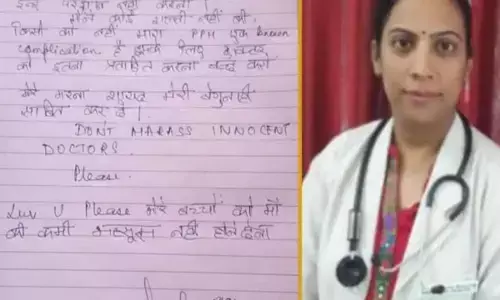 इन्हें परेशान नहीं करना।
मैंने कोई गलती नहीं की,
किसी को नहीं मारा PPH एक known
complication है इसके लिए डॉक्टर
को इतना प्रताड़ित करना बन्द करो
मेरा मरना शायद मेरी बेगुनाही
साबित कर दे।
DONT HARASS INNOCENT
DOCTORS.
Please.
Luv U Please मेरे बच्चों को माँ
की कमी महसूस नहीं होने देना